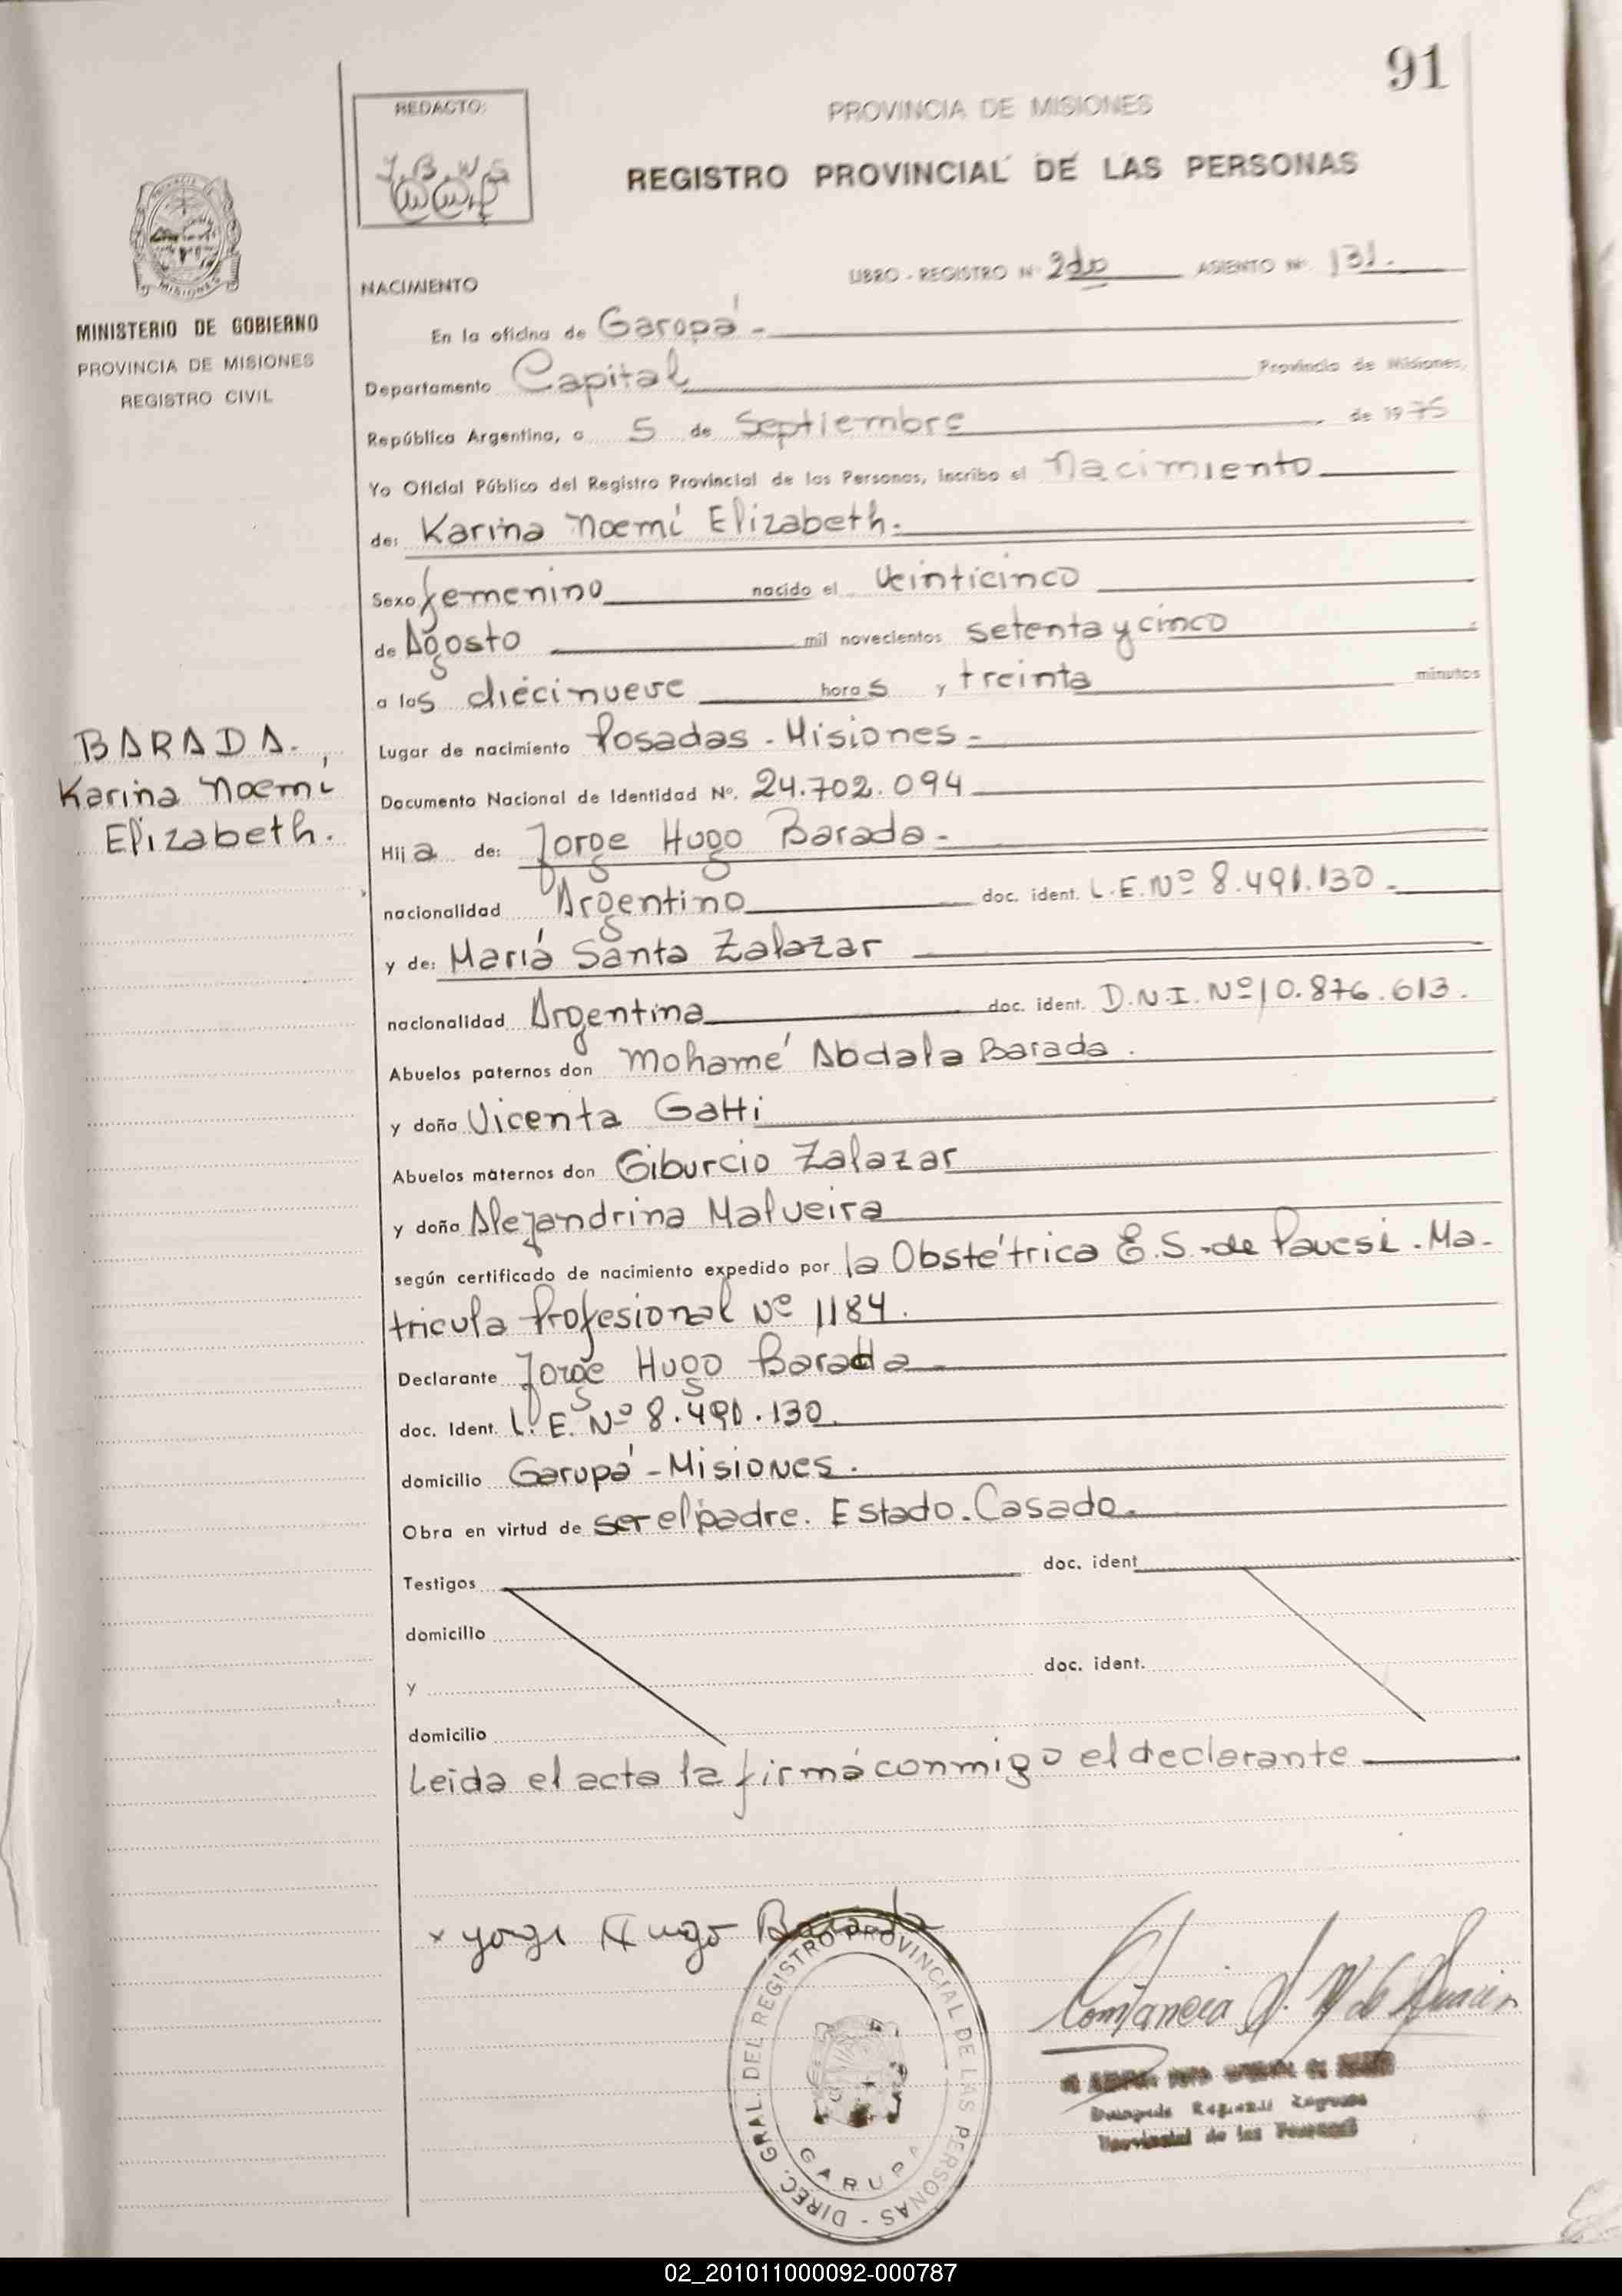 91
REDACTO:
PROVINCIA DE MISIONES
REGISTRO PROVINCIAL DE LAS PERSONAS
MINISTERIO DE GOBIERNO
PROVINCIA DE MISIONES
REGISTRO CIVIL
LIBRO - REGISTRO Nº 2do ASIENTO Nº 131.
NACIMIENTO
En la oficina de Garupá -
Departamento Capital Provincia de Misiones,
República Argentina, a 5 de Septiembre de 1975
Yo Oficial Público del Registro Provincial de las Personas, inscribo el nacimiento
de: Karina Noemí Elizabeth.
Sexo femenino nacido el veinticinco
de Agosto mil novecientos setenta y cinco
a las diecinueve horas y treinta minutos
Lugar de nacimiento Posadas - Misiones -
BARADA.
Karina Noemí
Elizabeth.
Documento Nacional de Identidad Nº. 24.702.094
Hija de: Jorge Hugo Barada -
nacionalidad Argentino doc. ident. L.E.Nº 8.491.130 -
y de: María Santa Zalazar
nacionalidad Argentina doc. ident. D.N.I. Nº 10.876.613.
Abuelos paternos don Mohamé Abdala Barada.
y doña Vicenta Gatti
Abuelos maternos don Giburcio Zalazar
y doña Alejandrina Malveira
según certificado de nacimiento expedido por la Obstétrica E.S. de Pavesi. Ma-
tricula Profesional Nº 1184.
Declarante Jorge Hugo Barada -
doc. Ident. L.E. Nº 8.491.130.
domicilio Garupá - Misiones.
Obra en virtud de ser el padre. Estado. Casado.
Testigos doc. ident
domicilio
y doc. ident.
domicilio
Leida el acta la firma conmigo el declarante
x Jorge Hugo Barada
DIREC. GRAL. DEL REGISTRO PROVINCIAL DE LAS PERSONAS -
GARUPA
Provincial de las Personas
02_201011000092-000787